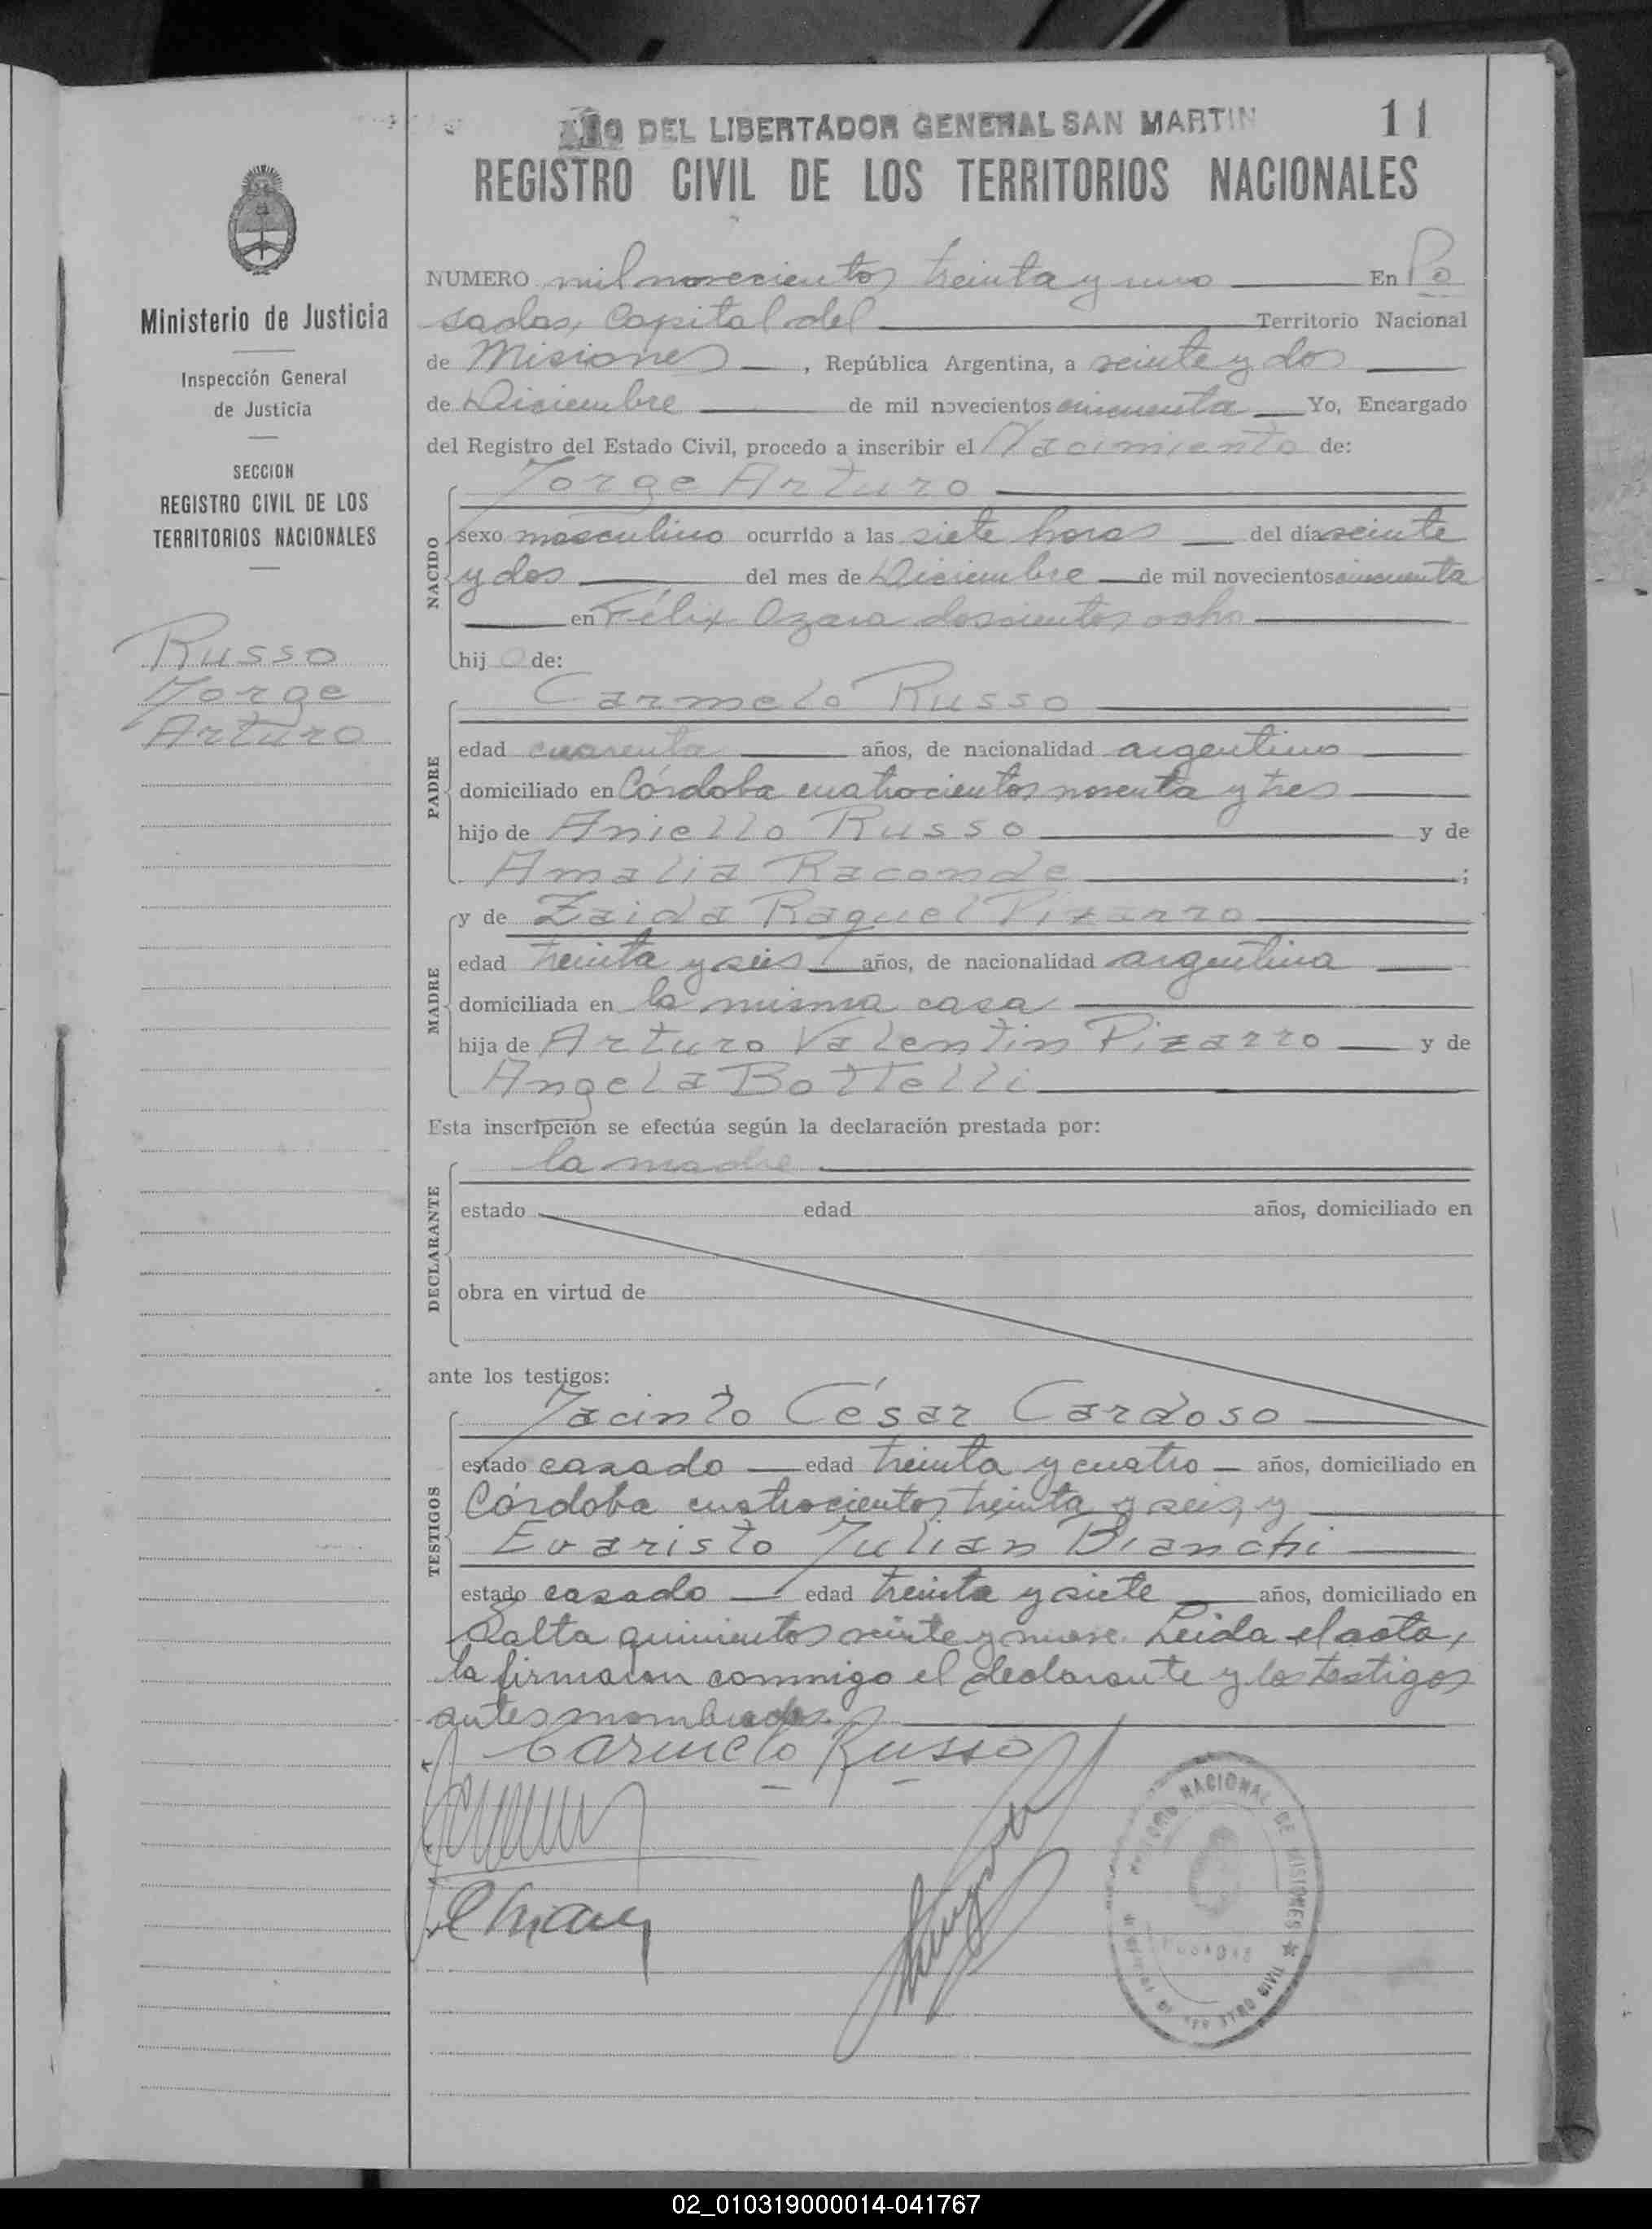 AÑO DEL LIBERTADOR GENERAL SAN MARTIN
11
REGISTRO CIVIL DE LOS TERRITORIOS NACIONALES
Ministerio de Justicia
Inspección General
de Justicia
SECCION
REGISTRO CIVIL DE LOS
TERRITORIOS NACIONALES
Russo
Jorge
Arturo
NUMERO mil novecientos treinta y uno En Po
sadas, Capital del Territorio Nacional
de Misiones, República Argentina, a veinte y dos
de Diciembre de mil novecientos cincuenta Yo, Encargado
del Registro del Estado Civil, procedo a inscribir el Nacimiento de:
NACIDO
Jorge Arturo
sexo masculino ocurrido a las siete horas del día veinte
y dos del mes de Diciembre de mil novecientos cincuenta
en Félix Azara doscientos ocho
hijo de:
PADRE
Carmelo Russo
edad cuarenta años, de nacionalidad argentino
domiciliado en Córdoba cuatrocientos noventa y tres
hijo de Aniello Russo y de
Amalia Raconde;
MADRE
y de Zaida Raquel Pizarro
edad treinta y seis años, de nacionalidad argentina
domiciliada en la misma casa
hija de Arturo Valentin Pizarro y de
Angela Bottelli
Esta inscripción se efectúa según la declaración prestada por:
DECLARANTE
la madre
estado edad años, domiciliado en
obra en virtud de
ante los testigos:
TESTIGOS
Jacinto César Cardoso
estado casado edad treinta y cuatro años, domiciliado en
Córdoba cuatrocientos treinta y seis, y
Evaristo Julian Bianchi
estado casado edad treinta y siete años, domiciliado en
Salta quinientos veinte y nueve. Leida el acta,
la firmaron conmigo el declarante y los testigos
antes nombrados.
Carmelo Russo
NACIONAL DE MISIONES
POSADAS
CIVIL
02_010319000014-041767